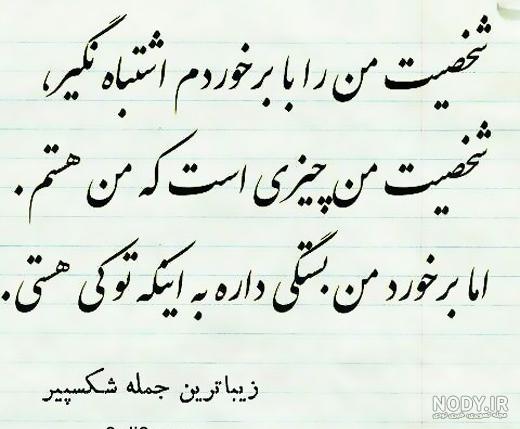 شخصیت من را با برخوردم اشتباه نگیر،
شخصیت من چیزی است که من هستم .
اما برخورد من بستگی داره به اینکه تو کی هستی .
زیباترین جمله شکسپیر
NODY.IR
مجله تصویری خبری نودی